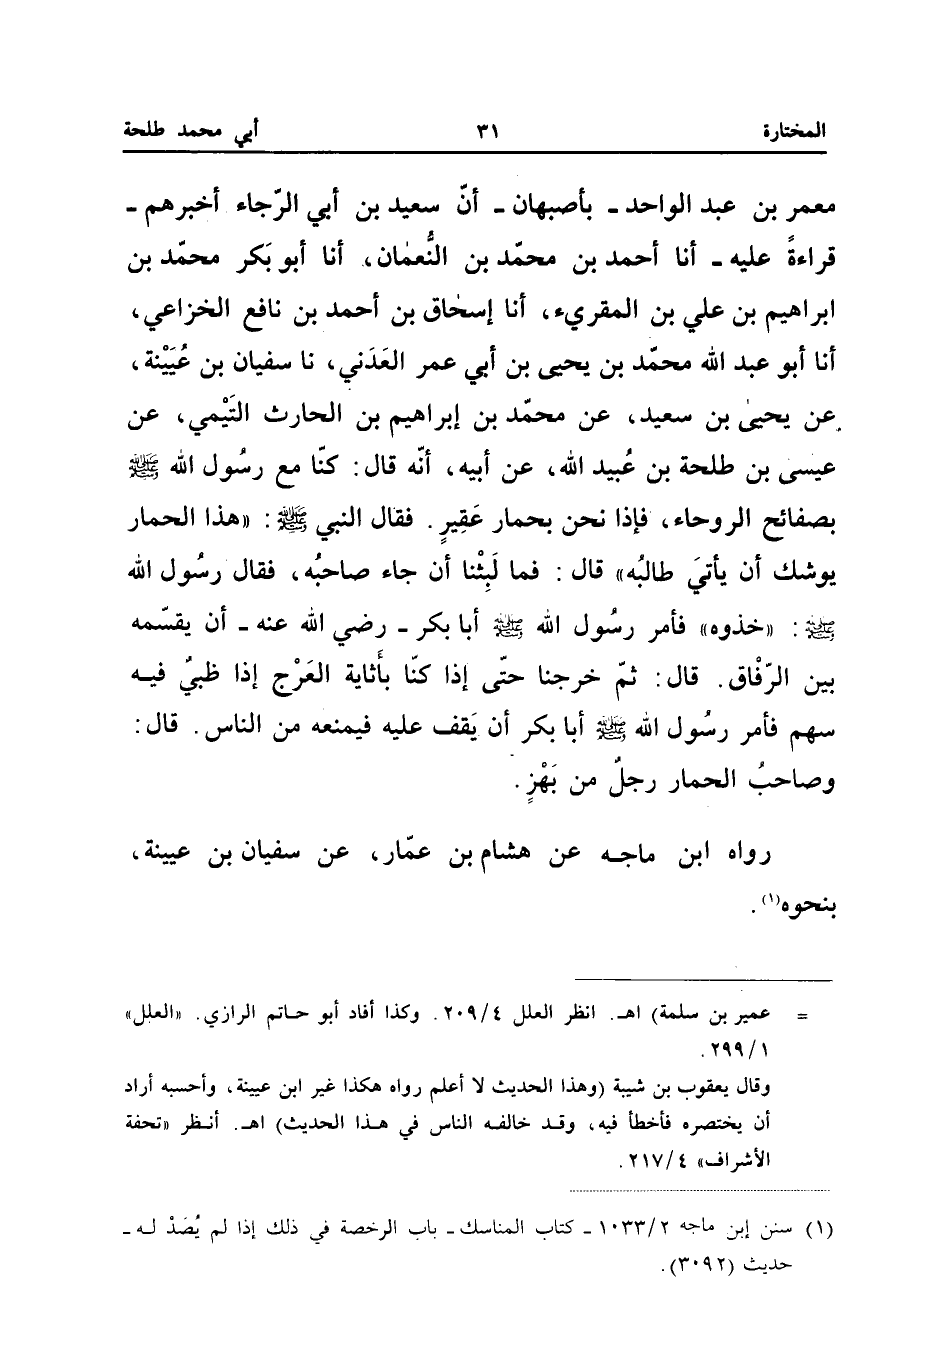 المختارة ٣١ أبي محمد طلحة
معمر بن عبد الواحد ـ بأصبهان ـ أنّ سعيد بن أبي الرّجاء أخبرهم ـ
قراءةً عليه ـ أنا أحمد بن محمّد بن النُّعمٰان، أنا أبو بَكر محمّد بن
ابراهيم بن علي بن المقريء، أنا إسحٰاق بن أحمد بن نافع الخزاعي،
أنا أبو عبد الله محمّد بن يحيى بن أبي عمر العَدَني، نا سفيان بن عُيَيْنة،
عن يحيىٰ بن سعيد، عن محمّد بن إبراهيم بن الحارث التَيْمي، عن
عيسى بن طلحة بن عُبيد الله، عن أبيه، أنّه قال: كنّا مع رسُول الله ﷺ
بصفائح الروحاء، فإذا نحن بحمار عَقِيرٍ. فقال النبي ﷺ: «هذا الحمار
يوشك أن يأتيَ طالبُه» قال: فما لَبِثْنا أن جاء صاحبُه، فقال رسُول الله
ﷺ: «خذوه» فأمر رسُول الله ﷺ أبا بكر ـ رضي الله عنه ـ أن يقسّمه
بين الرّفْاق. قال: ثمّ خرجنا حتّى إذا كنّا بأَثاية العَرْج إذا ظبيٌ فيه
سهم فأمر رسُول الله ﷺ أبا بكر أن يَقف عليه فيمنعه من الناس. قال:
وصاحبُ الحمار رجلٌ من بَهْزٍ.
رواه ابن ماجه عن هشام بن عمّار، عن سفيان بن عيينة،
بنحوه(١).
= عمير بن سلمة) اهـ. انظر العلل ٢٠٩/٤. وكذا أفاد أبو حاتم الرازي. «العلل»
٢٩٩/١.
وقال يعقوب بن شيبة (وهذا الحديث لا أعلم رواه هكذا غير ابن عيينة، وأحسبه أراد
أن يختصره فأخطأ فيه، وقد خالفه الناس في هذا الحديث) اهـ. أنظر «تحفة
الأشراف» ٢١٧/٤.
(١) سنن إبن ماجه ١٠٣٣/٢ ـ كتاب المناسك ـ باب الرخصة في ذلك إذا لم يُصَدْ له ـ
حديث (٣٠٩٢).